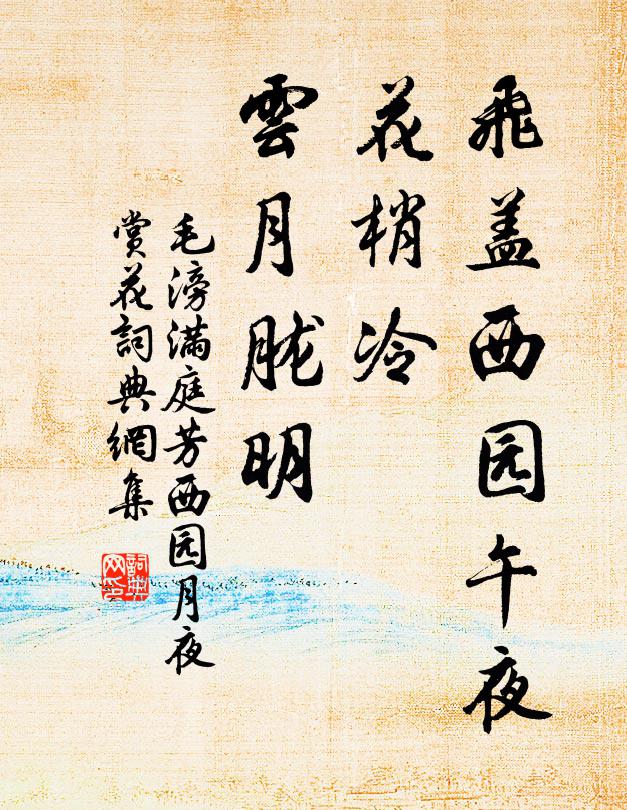 飛盖西园午夜
花梢冷
雲月胧明
毛滂满庭芳西园月夜
赏花詞典網集
詞典
网印